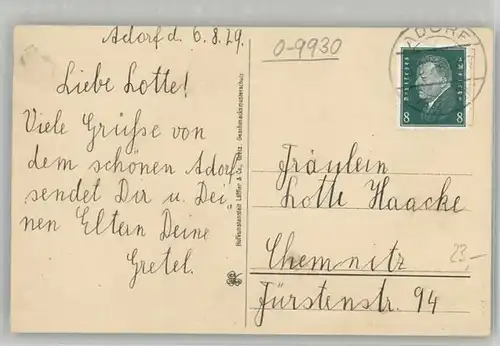 Adorf d. 6.8.29.
Liebe Lotte!
Viele Grüße von
dem schönen Adorf
sendet Dir u. Dei-
nen Eltern Deine
Gretel.
Hofkunstanstalt Löffler & Co., Greiz. Geschmacksmusterschutz
0-9930
ADORF
8 8
Fräulein
Lotte Haacke
Chemnitz
23,-
Fürstenstr. 94